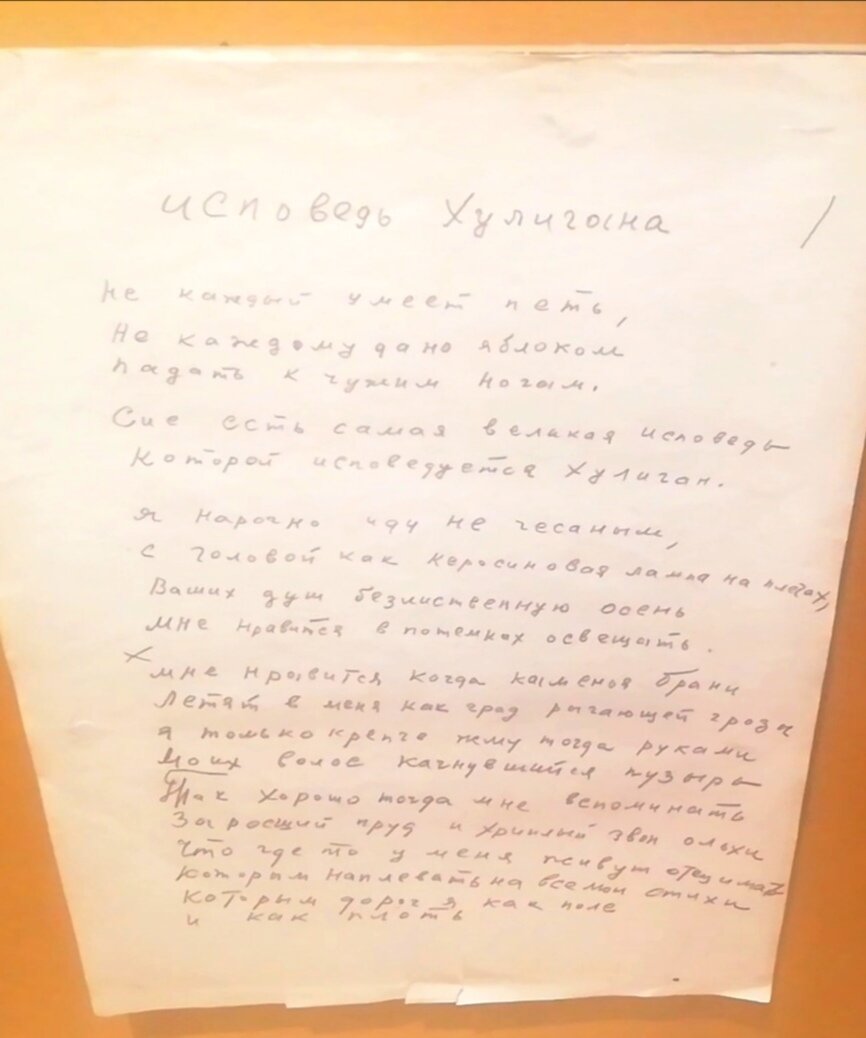 Исповедь Хулигана
Не каждый умеет петь,
Не каждому дано яблоком
падать к чужим ногам.
Сие есть самая великая исповедь
Которой исповедуется Хулиган.
Я нарочно иду не чесаным,
с головой как керосиновая лампа на плечах,
Ваших душ безлиственную осень
мне нравится в потемках освещать.
мне нравится когда каменья брани
Летят в меня как град рыгающей грозы
я только крепче жму тогда руками
Моих волос качнувшийся пузырь
Так хорошо тогда мне вспоминать
Заросший пруд и хриплый звон ольхи
Что где то у меня живут отец и мать
Которым наплевать на все мои стихи
Которым дорог я как поле
и как плоть